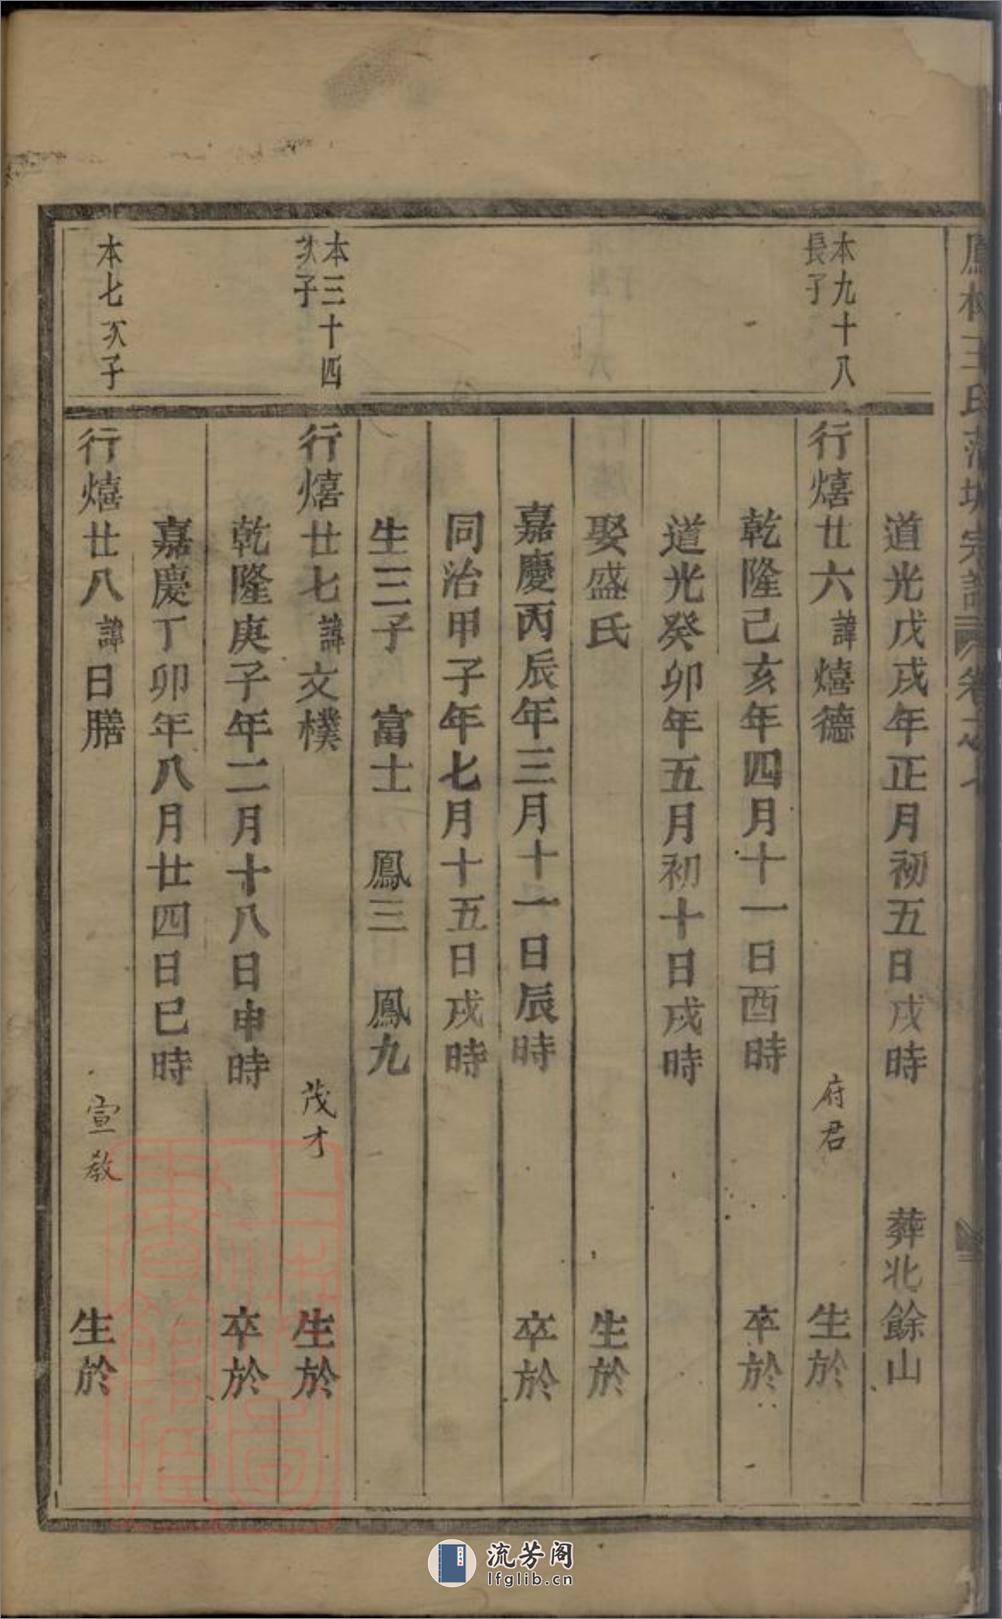 鳳林王氏蒲城宗譜 卷之七
道光戊戌年正月初五日戌時 葬北餘山
本九十八
長子
行熺廿六諱熺德 府君 生於
乾隆己亥年四月十一日酉時 卒於
道光癸卯年五月初十日戌時
娶盛氏 生於
嘉慶丙辰年三月十一日辰時 卒於
同治甲子年七月十五日戌時
生三子 富士 鳳三 鳳九
本三十四
次子
行熺廿七諱文樸 茂才 生於
乾隆庚子年二月十八日申時 卒於
嘉慶丁卯年八月廿四日巳時
本七次子
行熺廿八諱日膳 宣教 生於
上海圖書館藏
流芳阁
lfglib.cn